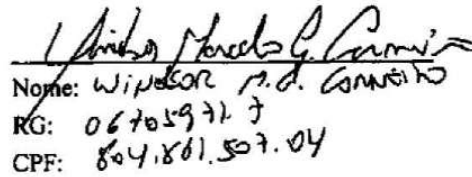 Nome: WINDSOR M. G. CARNEIRO
RG: 06705971.7
CPF: 804.861.507.04